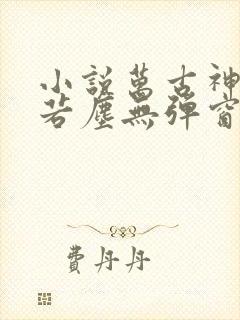 小說萬古神
若塵無彈窗
費丹丹